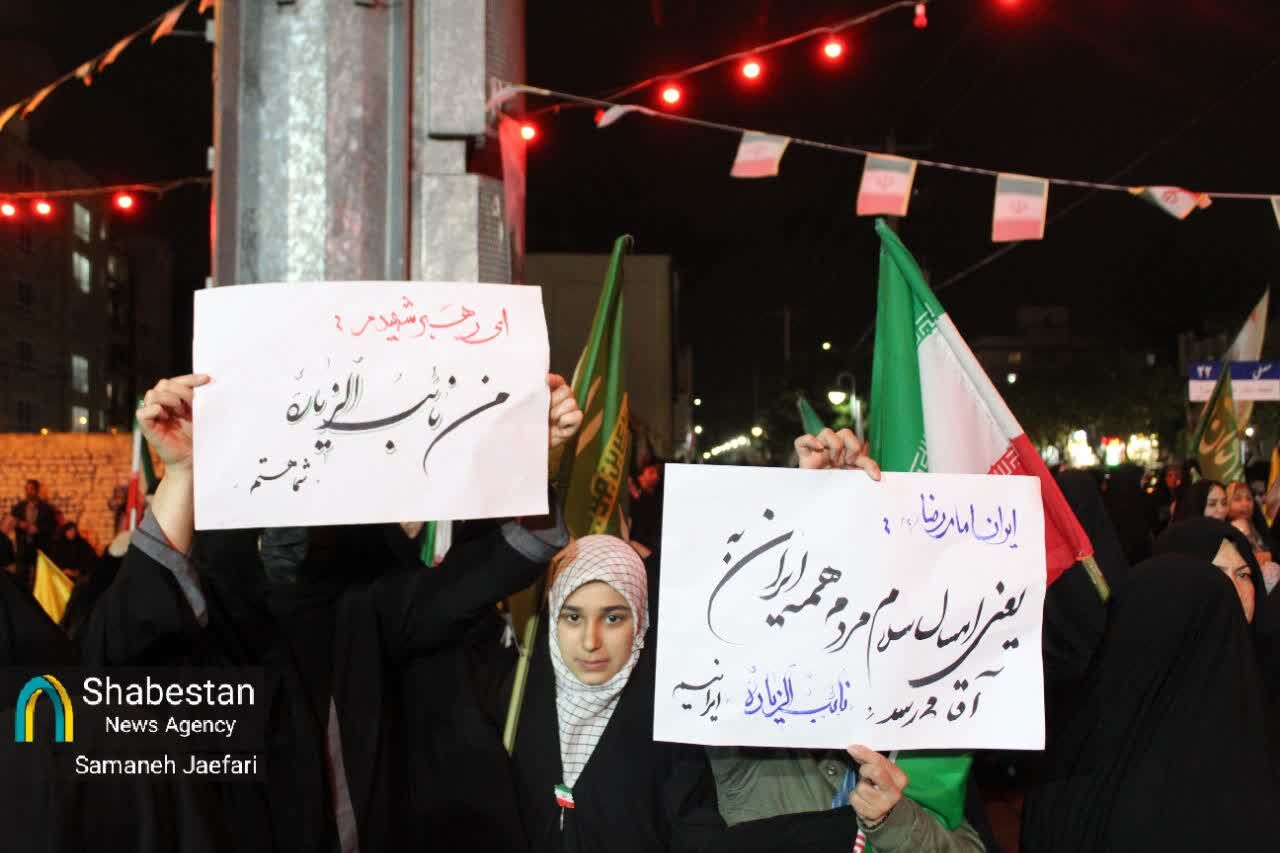 ای رهبر شهیدم :
من نائب الزیاره
شما هستم .
ایران امام رضا (ع) :
یعنی ارسال سلام مردم همه ایران به
آقا می‌رسد ؛ نائب الزیاره ایرانیم
مصلی
۲۲
Shabestan
News Agency
Samaneh Jaefari